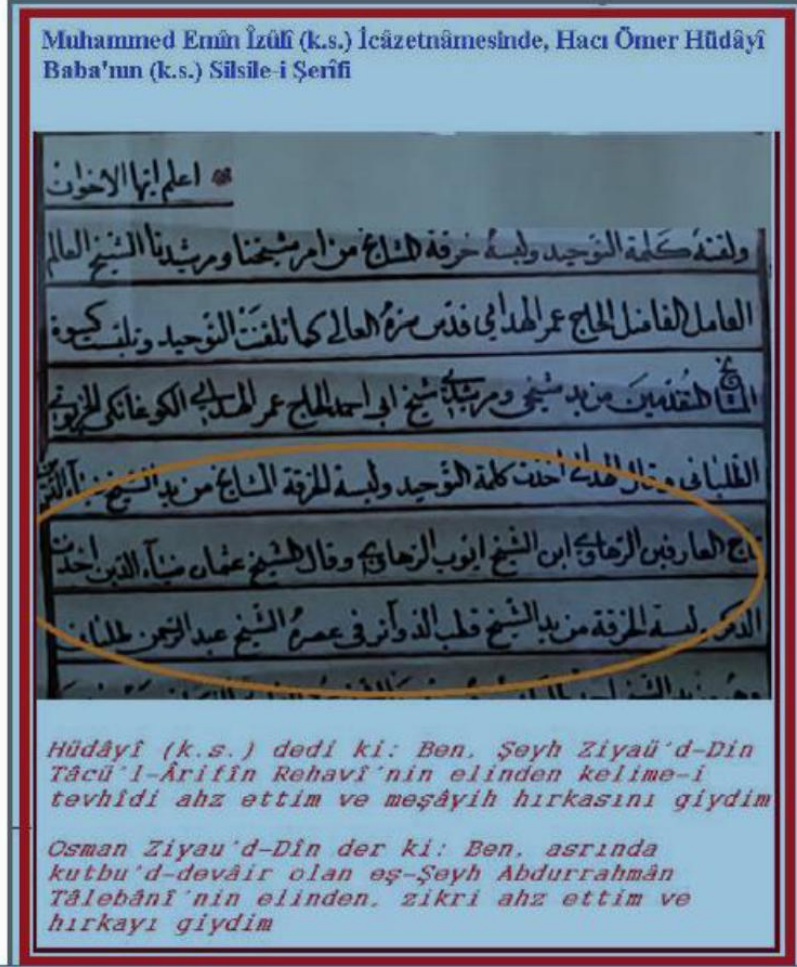 Muhammed Emîn Îzûlî (k.s.) İcâzetnâmesinde, Hacı Ömer Hüdâyî
Baba'nın (k.s.) Silsile-i Şerîfi
اعلم ايها الاخوان
ولقنه كلمة التوحيد ولبسه خرقة المشايخ من امر شيخنا ومرشدنا الشيخ العالم
العامل الفاضل الحاج عمر الهدايي قدس سره العالي كما تلقنت التوحيد وتلبست كسوة
المشايخ المتقدمين من يد شيخي ومرشدي شيخ ابي احمد الحاج عمر الهدايي
وقال الهدائي اخذت كلمة التوحيد ولبسة الخرقة المشايخ من يد الشيخ
تاج العارفين الرهاوي ابن الشيخ ايوب الرهاوي وقال الشيخ عثمان ضياء الدين اخذت
الذكر ولبسة الخرقة من يد الشيخ قطب الدوآئر في عصره الشيخ عبد الرحمن
Hüdâyî (k.s.) dedi ki: Ben, Şeyh Ziyaü'd-Din
Tâcü'l-Ârifîn Rehavî'nin elinden kelime-i
tevhîdi ahz ettim ve meşâyih hırkasını giydim
Osman Ziyau'd-Dîn der ki: Ben, asrında
kutbu'd-devâir olan eş-Şeyh Abdurrahmân
Tâlebânî'nin elinden, zikri ahz ettim ve
hırkayı giydim